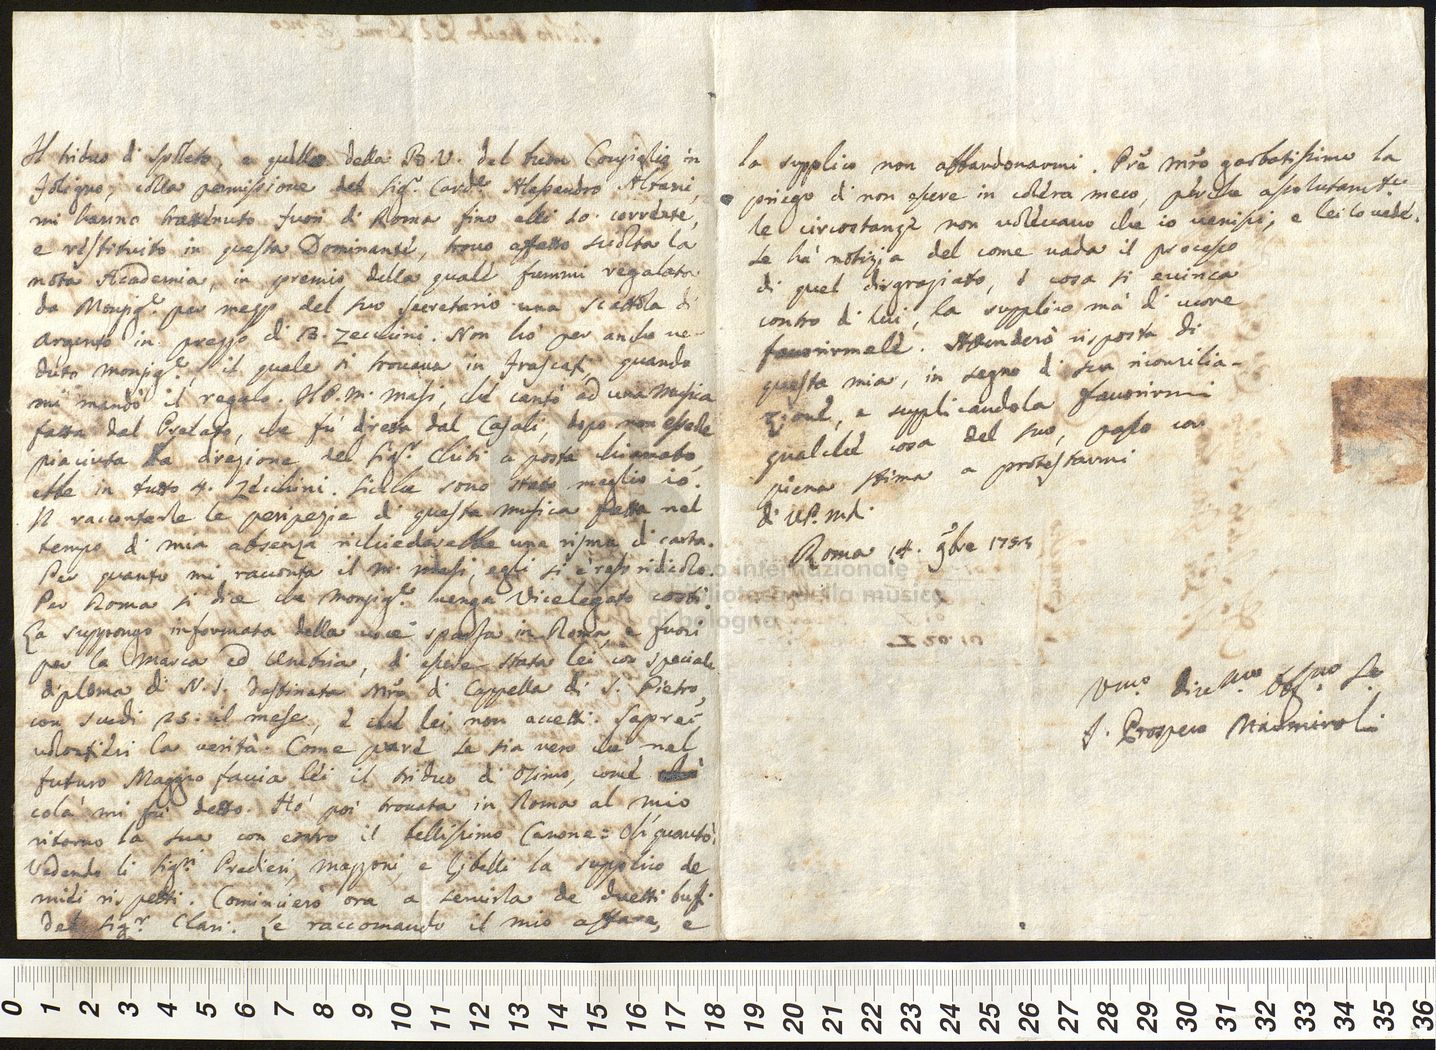 Il triduo di Spoleto, e quello della B. V. del buon Consiglio in
Foligno, colla permissione del Sig.r Card.e Alessandro Albani,
mi hanno trattenuto fuori di Roma fino alli 10. corrente,
e restituito in questa Dominante, trovo affatto sciolta la
nota Academia, in premio della quale fummi regalata
da Monsig.r per mezzo del suo Secretario una Scattola di
argento in prezzo di 13. Zecchini. Non hò per anche ve-
duto Monsig.r, il quale si trovava in Frascati, quando
mi mandò il regalo. Il P. M. Masi, che cantò ad una Musica
fatta dal Prelato, che fù diretta dal Casali, dopo non essere
piaciuta la direzione del Sig.r Chiti a posta chiamato
ebbe in tutto 4. Zecchini. Sicche sono stato meglio io.
Il raccontarle le peripezie di questa musica fatta nel
tempo di mia absenza richiederebbe una risma di carta.
Per quanto mi racconta il M. Masi, egli si è reso ridicolo.
Per Roma si dice che Monsig.r venga Vicelegato costì.
La suppongo informata della voce sparsa in Roma, e fuori
per la Marca ed Umbria, di essere stata lei con speciale
diploma di N. S. destinata Mro di Cappella di S. Pietro,
con scudi 25. il mese, e che lei non accetti. Saprei
volontieri la verità. Come pare se sia vero che nel
futuro Maggio faccia lei il triduo di Osimo, come
colà mi fù detto. Hò poi trovata in Roma al mio
ritorno la sua con entro il bellissimo Canone: Oh quanto!
Vedendo li Sig.ri Predieri, Mazzoni, e Gibelli la supplico de
miei rispetti. Comincierò ora a servirla de duetti buffi
del Sig.r Clari. Le raccomando il mio affare, e
la supplico non abbandonarmi. Pre Mro garbatissimo la
priego di non essere in colèra meco, perche assolutamte
le circostanze non volevano che io venissi, e lei lo vede.
Se hà notizia del come vada il processo
di quel disgraziato, e cosa si evinca
contro di lui, la supplico mà di cuore
favorirmele. Attenderò risposta di
questa mia, in segno di sua riconcilia-
zione, e supplicandola favorirmi
qualche cosa del suo, passo con
piena stima a protestarmi
di V. P. M. R.
Roma 14. 9bre 1755
Umo Divmo Obbmo Se
F. Prospero Marmiroli